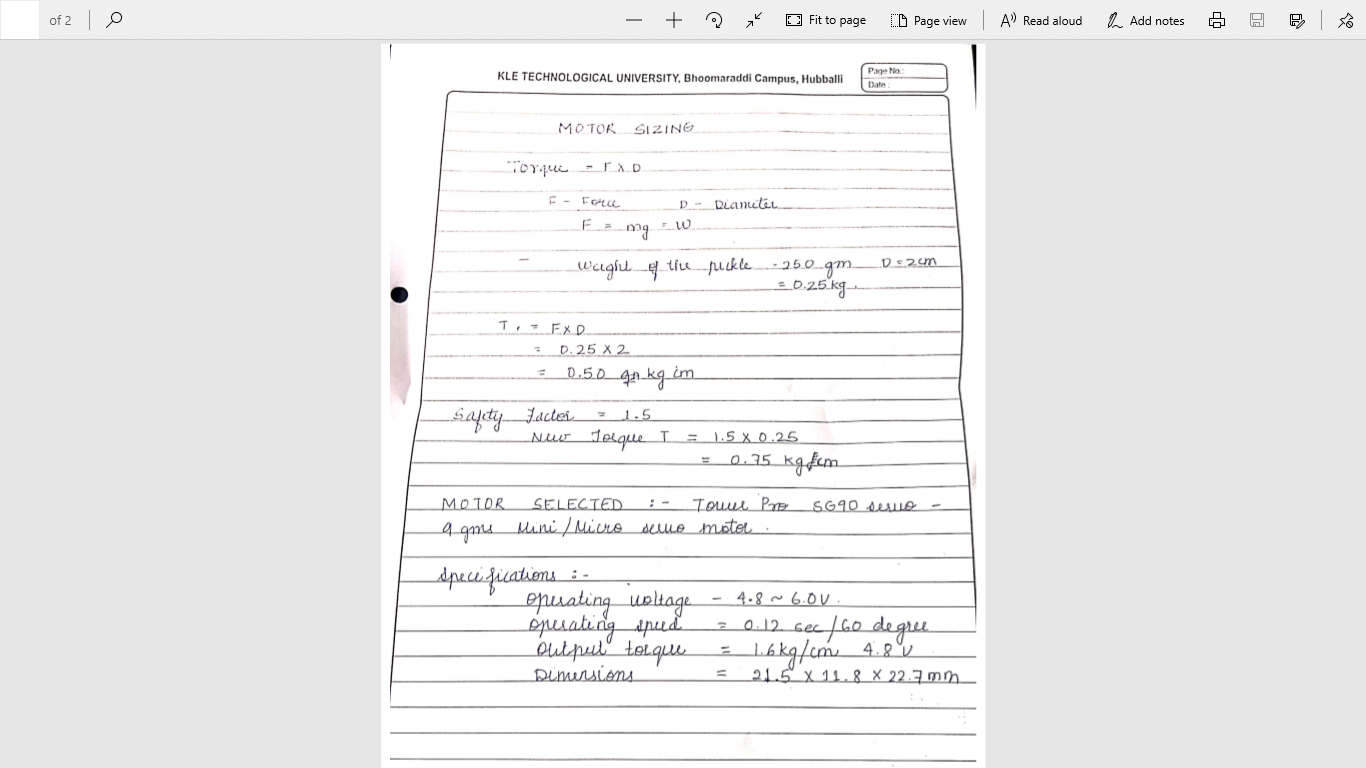 of 2 Fit to page Page view Read aloud Add notes
KLE TECHNOLOGICAL UNIVERSITY, Bhoomaraddi Campus, Hubballi
Page No.:
Date :
MOTOR SIZING
Torque = F X D
F - Force D - Diameter
F = mg = W
- Weight of the pickle - 250 gm D = 2cm
= 0.25 kg.
T. = F X D
= 0.25 X 2
= 0.50 kg cm
Safety Factor = 1.5
New Torque T = 1.5 X 0.25
= 0.75 kg cm
MOTOR SELECTED :- Tower Pro SG90 servo -
9 gms Mini/Micro servo motor.
Specifications :-
Operating voltage - 4.8 ~ 6.0V.
Operating speed = 0.12 sec/60 degree
Output torque = 1.6kg/cm 4.8 V
Dimensions = 21.5 X 11.8 X 22.7 mm